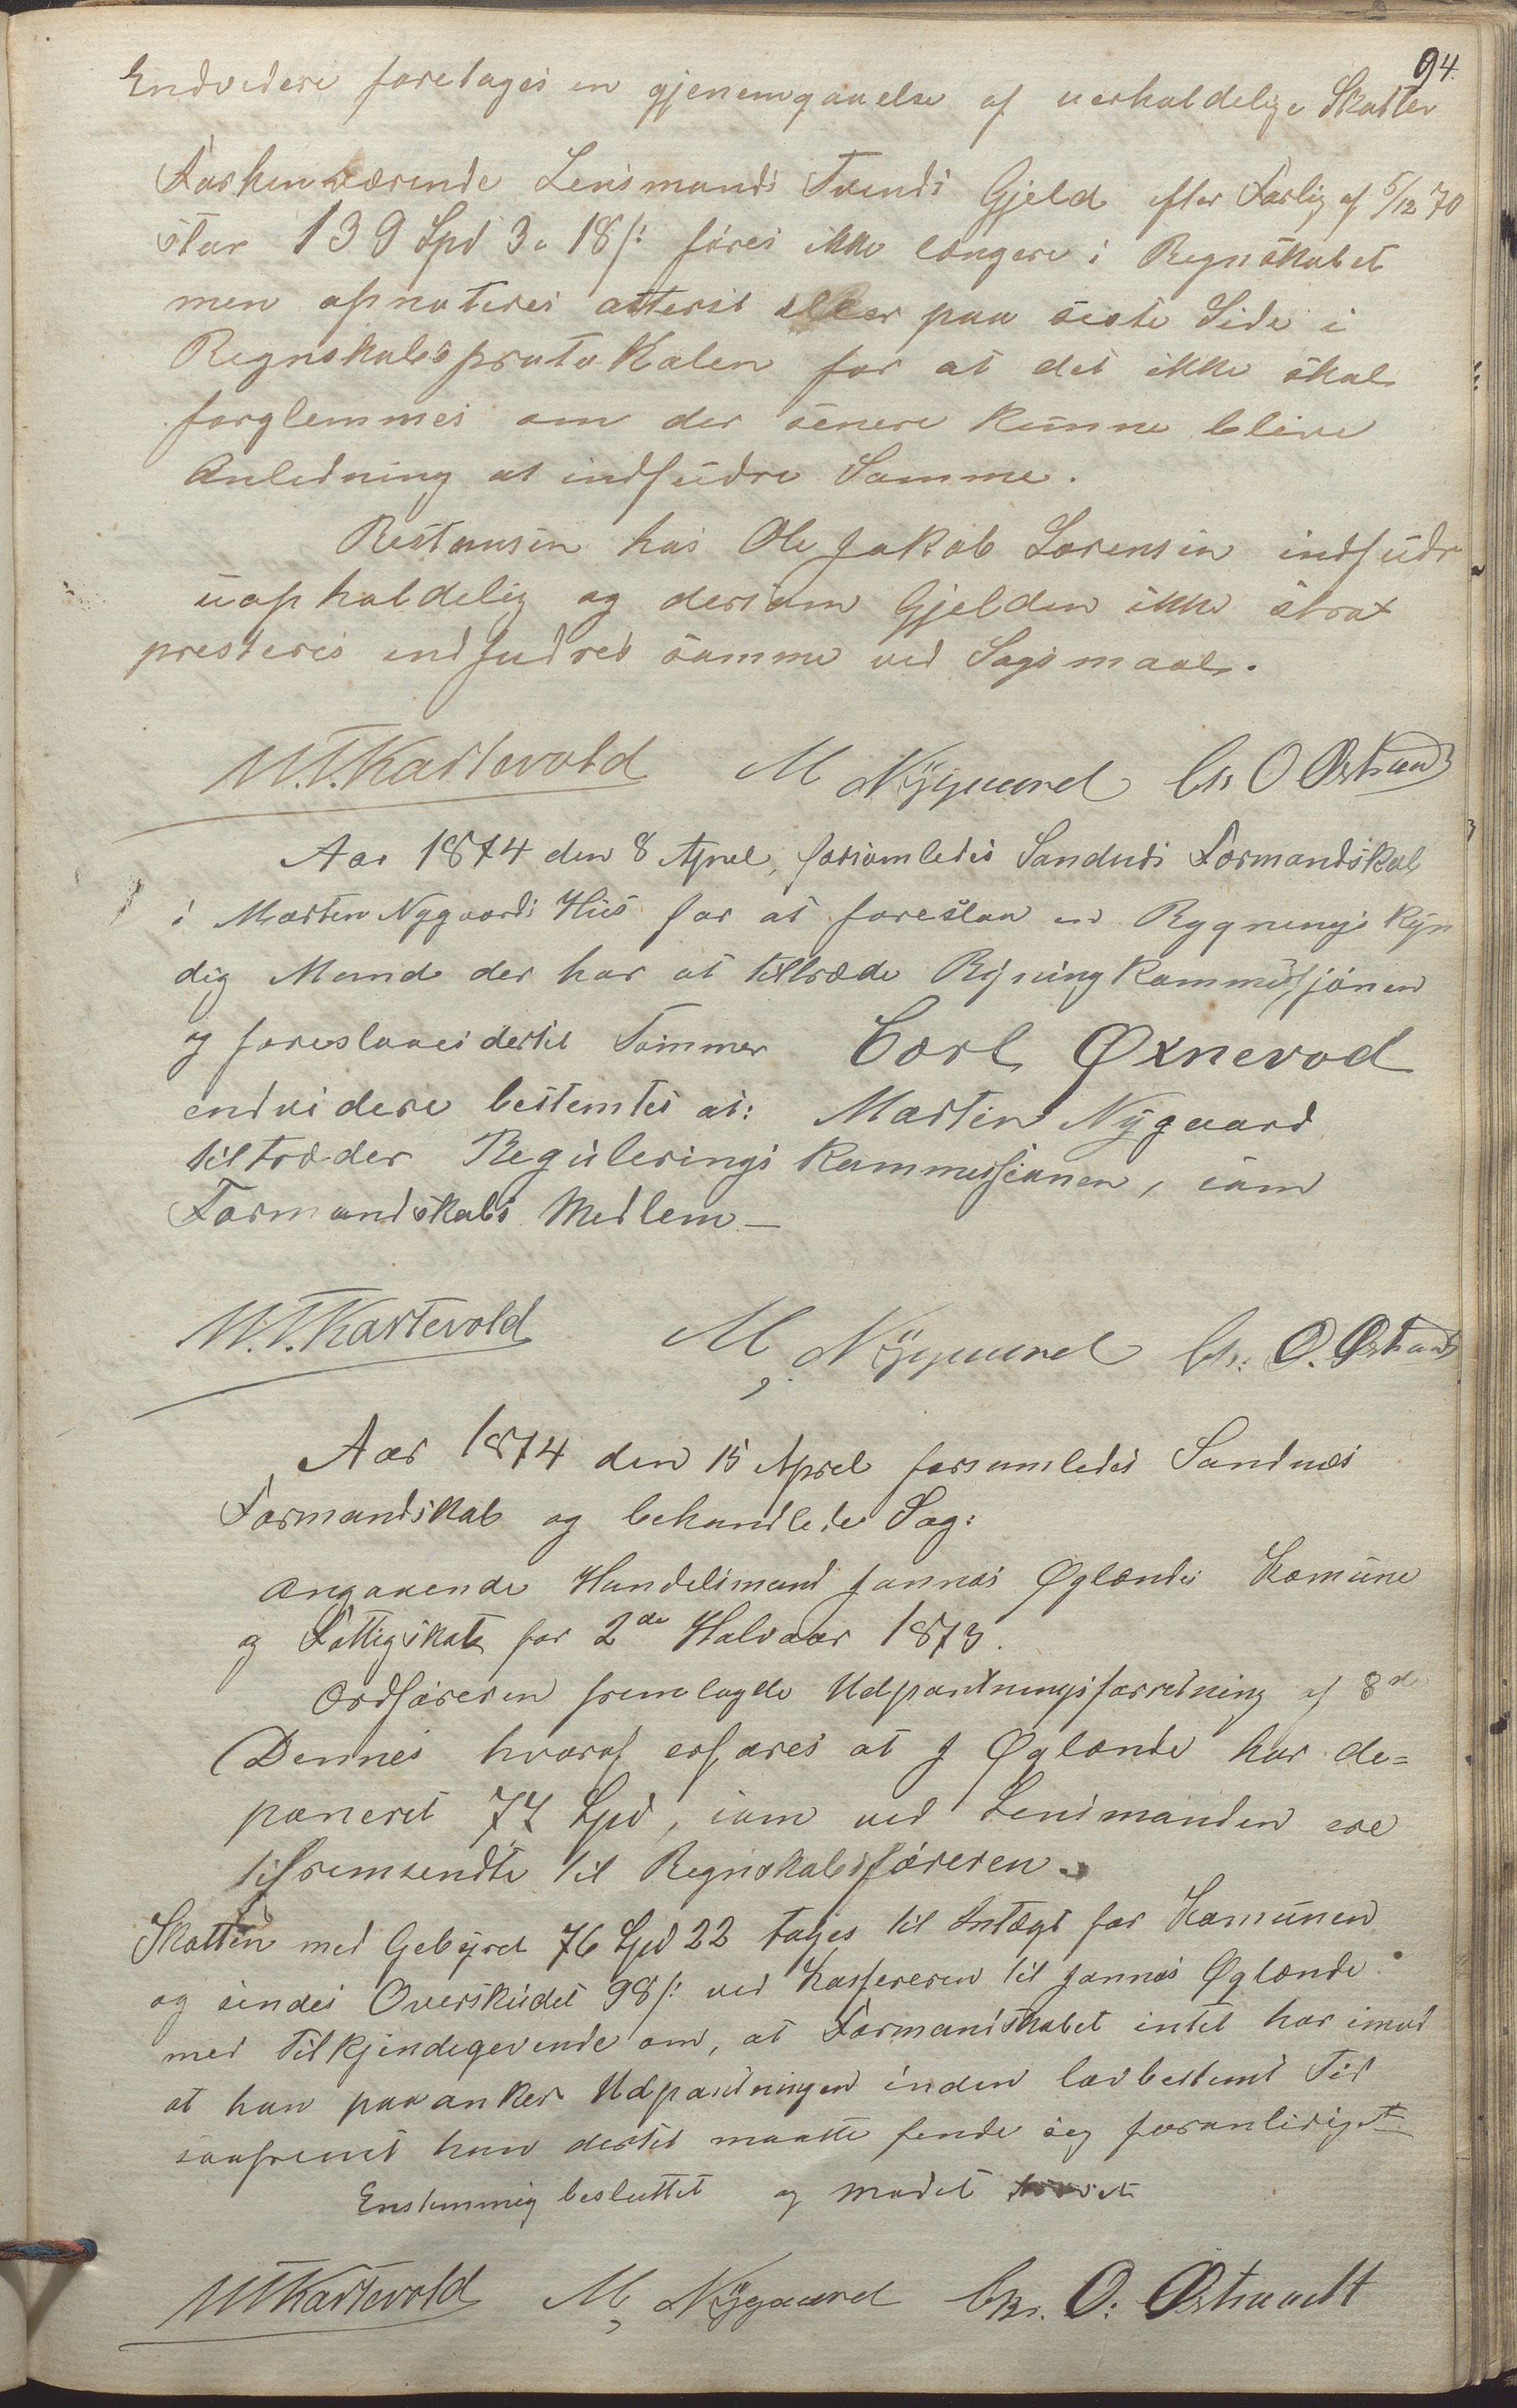 94.
Endvidere foretages en gjenemgaaelse af uerholdelige Skatter
Forhenværende Lensmands Tvends Gjeld efter Forlig af 5/12 70
stor 139 Spd 3 o 18 s: føres ikke længere i Regnskabet
men opnoteres atterst eller paa siste Side i
Regnskabsprotokolen for at det ikke skal
forglemmes om der senere kunne blive
Anledning at indfudre Samme.
Restansen hos Ole Jakob Lorensen indfudr
uopholdelig og dersom Gjelden ikke strax
presteres indfudres samme ved Sagsmaal.
W.T.Kartevold M Nÿgaard Chr O Østraadt
Aar 1874 den 8 April, forsamledes Sandnes Formandskab
i Morten Nygaards Hus for at foreslaa en Bygnings kÿn
dig Mand der har at tiltræde Bÿning Kommissjonen
og foreslaaes dertil Tømmer Carl Øxnevad
endvidere bestemtes at: Morten Nÿgaard
tiltræder Regulerings Kommissionen, som
Formandskabs Medlem —
W.T.Kartevold M, Nÿgaard Chr: O. Østraadt
Aar 1874 den 15 April forsamledes Sandnæs
Formandskab og behandlede Sag:
angaaende Handelsmand Jonnas Øglænds Komune
og Fattigskat for 2de Halvaar 1873.
Ordføreren fremlagde Udpantningsforretning af 8de
Dennes hvoraf erfares at J Øglænd har de=
poneret 77 Spd, som ved Lensmanden ere
fremsendte til Regnskabsføreren.
Skatten med Gebÿrel 76 Spd 22 tages til Indtægt for Komunen
og sendes Overskudet 98 s: ved Kassereren til Jonnas Øglænd
med Tilkjendegivende om, at Formandskabet intet har imod
at han paaanker Udpantningen inden lovbestemt Tid
saafremt han dertil maatte finde sig foranlediget
Enstemmig besluttet og mødet hævet
W T Kartevold M, Nÿgaard Chr. O: Østraadt